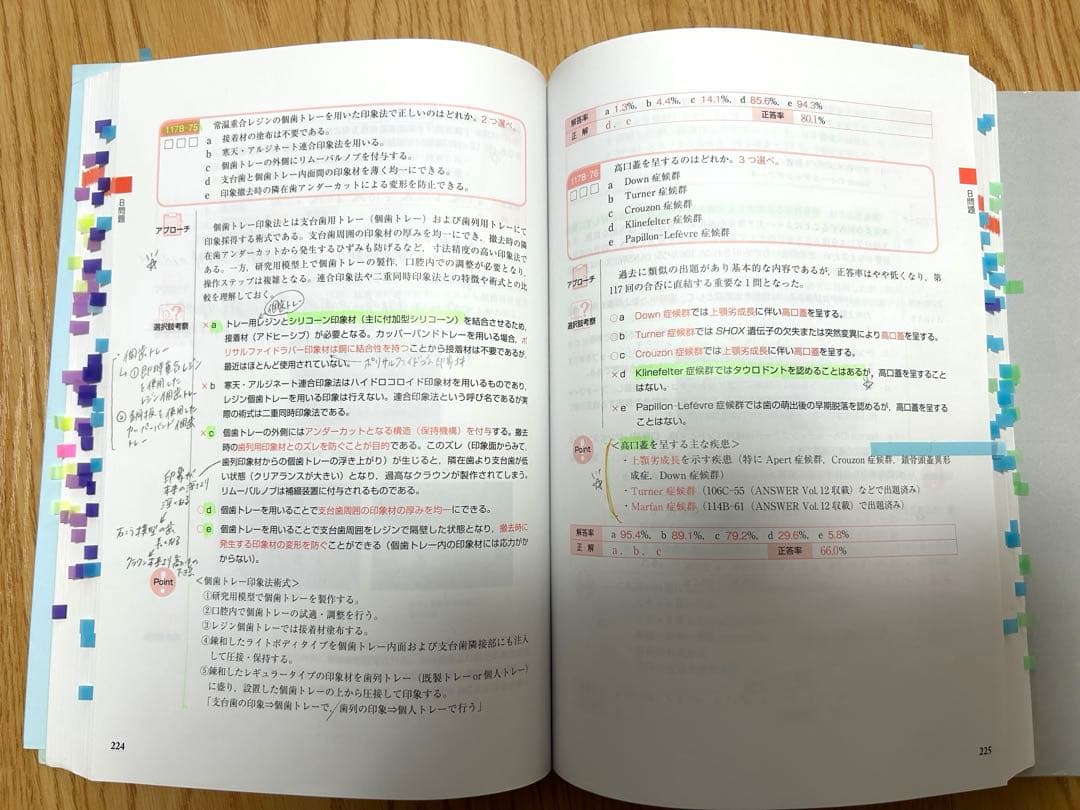 117B-75 常温重合レジンの個歯トレーを用いた印象法で正しいのはどれか。2つ選べ。
a 接着材の塗布は不要である。
b 寒天・アルジネート連合印象法を用いる。
c 個歯トレーの外側にリムーバルノブを付与する。
d 支台歯と個歯トレー内面間の印象材を薄く均一にできる。
e 印象撤去時の隣在歯アンダーカットによる変形を防止できる。
B問題
アプローチ
個歯トレー印象法とは支台歯用トレー（個歯トレー）および歯列用トレーにて
印象採得する術式である。支台歯周囲の印象材の厚みを均一にでき、撤去時の隣
在歯アンダーカットから発生するひずみも防げるなど、寸法精度の高い印象法で
ある。一方、研究用模型上で個歯トレーの製作、口腔内での調整が必要となり、
操作ステップは複雑となる。連合印象法や二重同時印象法との特徴や術式との比
較を理解しておく。
個歯トレー
選択肢考察
×a トレー用レジンとシリコーン印象材（主に付加型シリコーン）を結合させるため、
接着材（アドヒーシブ）が必要となる。カッパーバンドトレーを用いる場合、ポ
リサルファイドラバー印象材は銅に結合性を持つことから接着材は不要であるが、
最近はほとんど使用されていない。
×b 寒天・アルジネート連合印象法はハイドロコロイド印象材を用いるものであり、
レジン個歯トレーを用いる印象は行えない。連合印象法という呼び名であるが実
際の術式は二重同時印象法である。
×c 個歯トレーの外側にはアンダーカットとなる構造（保持機構）を付与する。撤去
時の歯列用印象材とのズレを防ぐことが目的である。このズレ（印象面からみて、
歯列印象材からの個歯トレーの浮き上がり）が生じると、隣在歯より支台歯が低
い状態（クリアランスが大きい）となり、過高なクラウンが製作されてしまう。
リムーバルノブは補綴装置に付与されるものである。
○d 個歯トレーを用いることで支台歯周囲の印象材の厚みを均一にできる。
○e 個歯トレーを用いることで支台歯周囲をレジンで隔壁した状態となり、撤去時に
発生する印象材の変形を防ぐことができる（個歯トレー内の印象材には応力がか
からない）。
個歯トレー
①即時重合レジン
を使用した
レジン個歯トレー
②銅板を使用した
カッパーバンド個歯
トレー
印象が
本来の深さより
深くなる
石こう模型の歯
長くなる
Point
＜個歯トレー印象法術式＞
①研究用模型で個歯トレーを製作する。
②口腔内で個歯トレーの試適・調整を行う。
③レジン個歯トレーでは接着材塗布する。
④錬和したライトボディタイプを個歯トレー内面および支台歯隣接部にも注入
して圧接・保持する。
⑤錬和したレギュラータイプの印象材を歯列トレー（既製トレーor個人トレー）
に盛り、設置した個歯トレーの上から圧接して印象する。
「支台歯の印象⇒個歯トレーで、歯列の印象⇒個人トレーで行う」
224
解答率 a 1.3%、b 4.4%、c 14.1%、d 85.6%、e 94.3%
正解 d、e 正答率 80.1%
117B-76 高口蓋を呈するのはどれか。3つ選べ。
a Down症候群
b Turner症候群
c Crouzon症候群
d Klinefelter症候群
e Papillon-Lefèvre症候群
B問題
アプローチ
過去に類似の出題があり基本的な内容であるが、正答率はやや低くなり、第
117回の合否に直結する重要な1問となった。
選択肢考察
○a Down症候群では上顎劣成長に伴い高口蓋を呈する。
○b Turner症候群ではSHOX遺伝子の欠失または突然変異により高口蓋を呈する。
○c Crouzon症候群では上顎劣成長に伴い高口蓋を呈する。
×d Klinefelter症候群ではタウロドントを認めることはあるが、高口蓋を呈すること
はない。
×e Papillon-Lefèvre症候群では歯の萌出後の早期脱落を認めるが、高口蓋を呈する
ことはない。
Point
＜高口蓋を呈する主な疾患＞
・上顎劣成長を示す疾患（特にApert症候群、Crouzon症候群、鎖骨頭蓋異形
成症、Down症候群）
・Turner症候群（106C-55（ANSWER Vol.12収載）などで出題済み）
・Marfan症候群（114B-61（ANSWER Vol.12収載）で出題済み）
解答率 a 95.4%、b 89.1%、c 79.2%、d 29.6%、e 5.8%
正解 a、b、c 正答率 66.0%
225